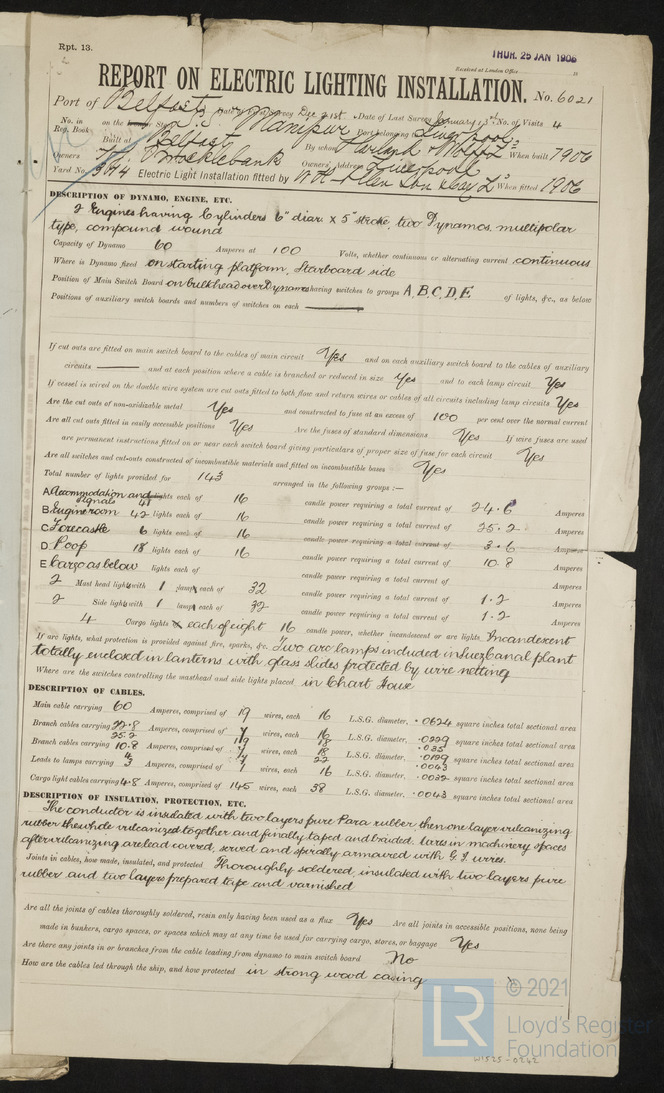 Rpt. 13.
THUR. 25 JAN 1906
Received at London Office
REPORT ON ELECTRIC LIGHTING INSTALLATION. No. 6021
Port of Belfast Date of First Survey Dec 21st Date of Last Survey January 13th No. of Visits 4
No. in Reg. Book on the S.S. Manipur Port belonging to Liverpool
Built at Belfast By whom Harland & Wolff Ld When built 1906
Owners T. & J. Brocklebank Owners' Address Liverpool
Yard No. 367 Electric Light Installation fitted by W H Allen Son & Coy Ld When fitted 1906
DESCRIPTION OF DYNAMO, ENGINE, ETC.
2 Engines having Cylinders 6" diar x 5" stroke, two Dynamos multipolar
type, compound wound
Capacity of Dynamo 60 Amperes at 100 Volts, whether continuous or alternating current continuous
Where is Dynamo fixed on starting platform, Starboard side
Position of Main Switch Board on bulkhead over Dynamo having switches to groups A, B, C, D, E of lights, &c., as below
Positions of auxiliary switch boards and numbers of switches on each
If cut outs are fitted on main switch board to the cables of main circuit Yes and on each auxiliary switch board to the cables of auxiliary
circuits and at each position where a cable is branched or reduced in size Yes and to each lamp circuit Yes
If vessel is wired on the double wire system are cut outs fitted to both flow and return wires or cables of all circuits including lamp circuits Yes
Are the cut outs of non-oxidizable metal Yes and constructed to fuse at an excess of 100 per cent over the normal current
Are all cut outs fitted in easily accessible positions Yes Are the fuses of standard dimensions Yes If wire fuses are used
are permanent instructions fitted on or near each switch board giving particulars of proper size of fuse for each circuit Yes
Are all switches and cut-outs constructed of incombustible materials and fitted on incombustible bases Yes
Total number of lights provided for 143 arranged in the following groups :—
A Accommodation and Signals 41 lights each of 16 candle power requiring a total current of 24.6 Amperes
B Engine room 42 lights each of 16 candle power requiring a total current of 25.2 Amperes
C Forecastle 6 lights each of 16 candle power requiring a total current of 3.6 Amperes
D Poop 18 lights each of 16 candle power requiring a total current of 10.8 Amperes
E Cargo as below lights each of candle power requiring a total current of Amperes
2 Mast head light with 1 lamp each of 32 candle power requiring a total current of 1.2 Amperes
2 Side light with 1 lamp each of 32 candle power requiring a total current of 1.2 Amperes
4 Cargo lights each of eight 16 candle power, whether incandescent or arc lights Incandescent
If arc lights, what protection is provided against fire, sparks, &c. Two arc lamps included in Suez Canal plant
totally enclosed in lanterns with glass slides protected by wire netting
Where are the switches controlling the masthead and side lights placed in Chart House
DESCRIPTION OF CABLES.
Main cable carrying 60 Amperes, comprised of 19 wires, each 16 L.S.G. diameter, .0624 square inches total sectional area
Branch cables carrying 22.8 Amperes, comprised of 7 wires, each 16 L.S.G. diameter, .0229 square inches total sectional area
25.2 19 18 .035
Branch cables carrying 10.8 Amperes, comprised of 7 wires, each 18 L.S.G. diameter, square inches total sectional area
Leads to lamps carrying Amperes, comprised of wires, each L.S.G. diameter, square inches total sectional area
Cargo light cables carrying 4.8 Amperes, comprised of 145 wires, each 38 L.S.G. diameter, .0043 square inches total sectional area
DESCRIPTION OF INSULATION, PROTECTION, ETC.
The conductor is insulated with two layers pure Para rubber, then one layer vulcanizing
rubber the whole vulcanized together and finally taped and braided. Wires in machinery spaces
after vulcanizing are lead covered, served and spirally armoured with G. I. wires.
Joints in cables, how made, insulated, and protected Thoroughly soldered, insulated with two layers pure
rubber and two layers prepared tape and varnished
Are all the joints of cables thoroughly soldered, resin only having been used as a flux Yes Are all joints in accessible positions, none being
made in bunkers, cargo spaces, or spaces which may at any time be used for carrying cargo, stores, or baggage Yes
Are there any joints in or branches from the cable leading from dynamo to main switch board No
How are the cables led through the ship, and how protected in strong wood casing
© 2021
LR
Lloyd's Register
Foundation
W1525-0242